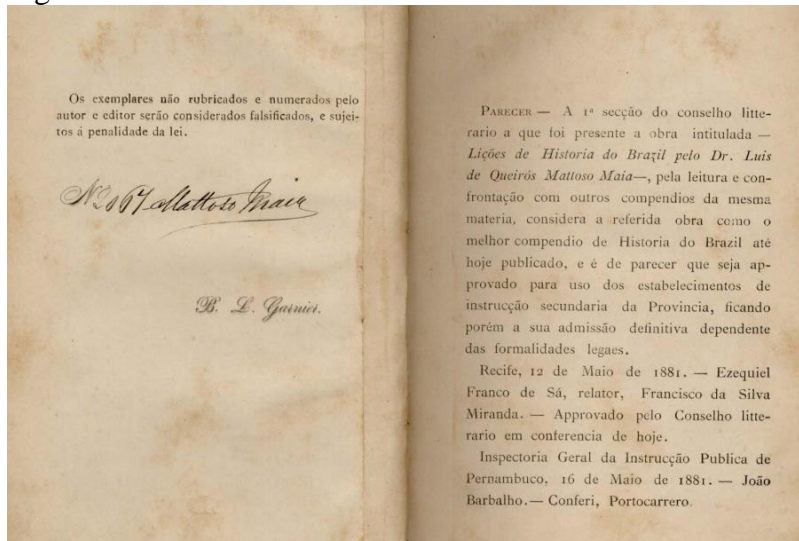 Os exemplares não rubricados e numerados pelo
autor e editor serão considerados falsificados, e sujei-
tos á penalidade da lei.
Mattoso Maia
B. L. Garnier.
PARECER — A 1ª secção do conselho litte-
rario a que foi presente a obra intitulada —
Lições de Historia do Brazil pelo Dr. Luis
de Queirós Mattoso Maia—, pela leitura e con-
frontação com outros compendios da mesma
materia, considera a referida obra como o
melhor compendio de Historia do Brazil até
hoje publicado, e é de parecer que seja ap-
provado para uso dos estabelecimentos de
instrucção secundaria da Provincia, ficando
porém a sua admissão definitiva dependente
das formalidades legaes.
Recife, 12 de Maio de 1881. — Ezequiel
Franco de Sá, relator, Francisco da Silva
Miranda. — Approvado pelo Conselho litte-
rario em conferencia de hoje.
Inspectoria Geral da Instrucção Publica de
Pernambuco, 16 de Maio de 1881. — João
Barbalho.— Conferi, Portocarrero.